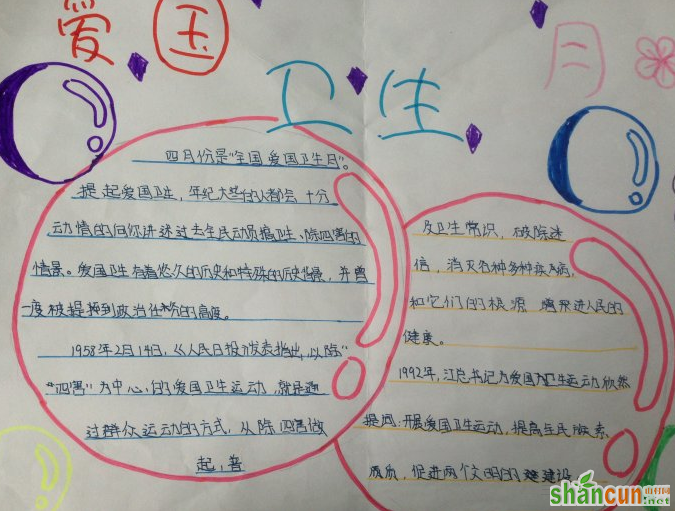 爱国
卫生
月
四月份是“全国爱国卫生月”。
提起爱国卫生，年纪大些的人都会十分
动情的向你讲述过去全民动员搞卫生、除四害的
情景。爱国卫生有着悠久的历史和特殊的历史背景，并曾
一度被提到政治任务的高度。
1958年2月14日，《人民日报》发表指出，以除
“四害”为中心的爱国卫生运动，就是通
过群众运动的方式，从除四害做
起，普
及卫生常识，破除迷
信，消灭各种多种疾病，
和它们的根源，增进人民的
健康。
1992年，江总书记为爱国卫生运动欣然
提词：开展爱国卫生运动，提高全民族素
质，促进两个文明的建设
shancun
山村网
.net